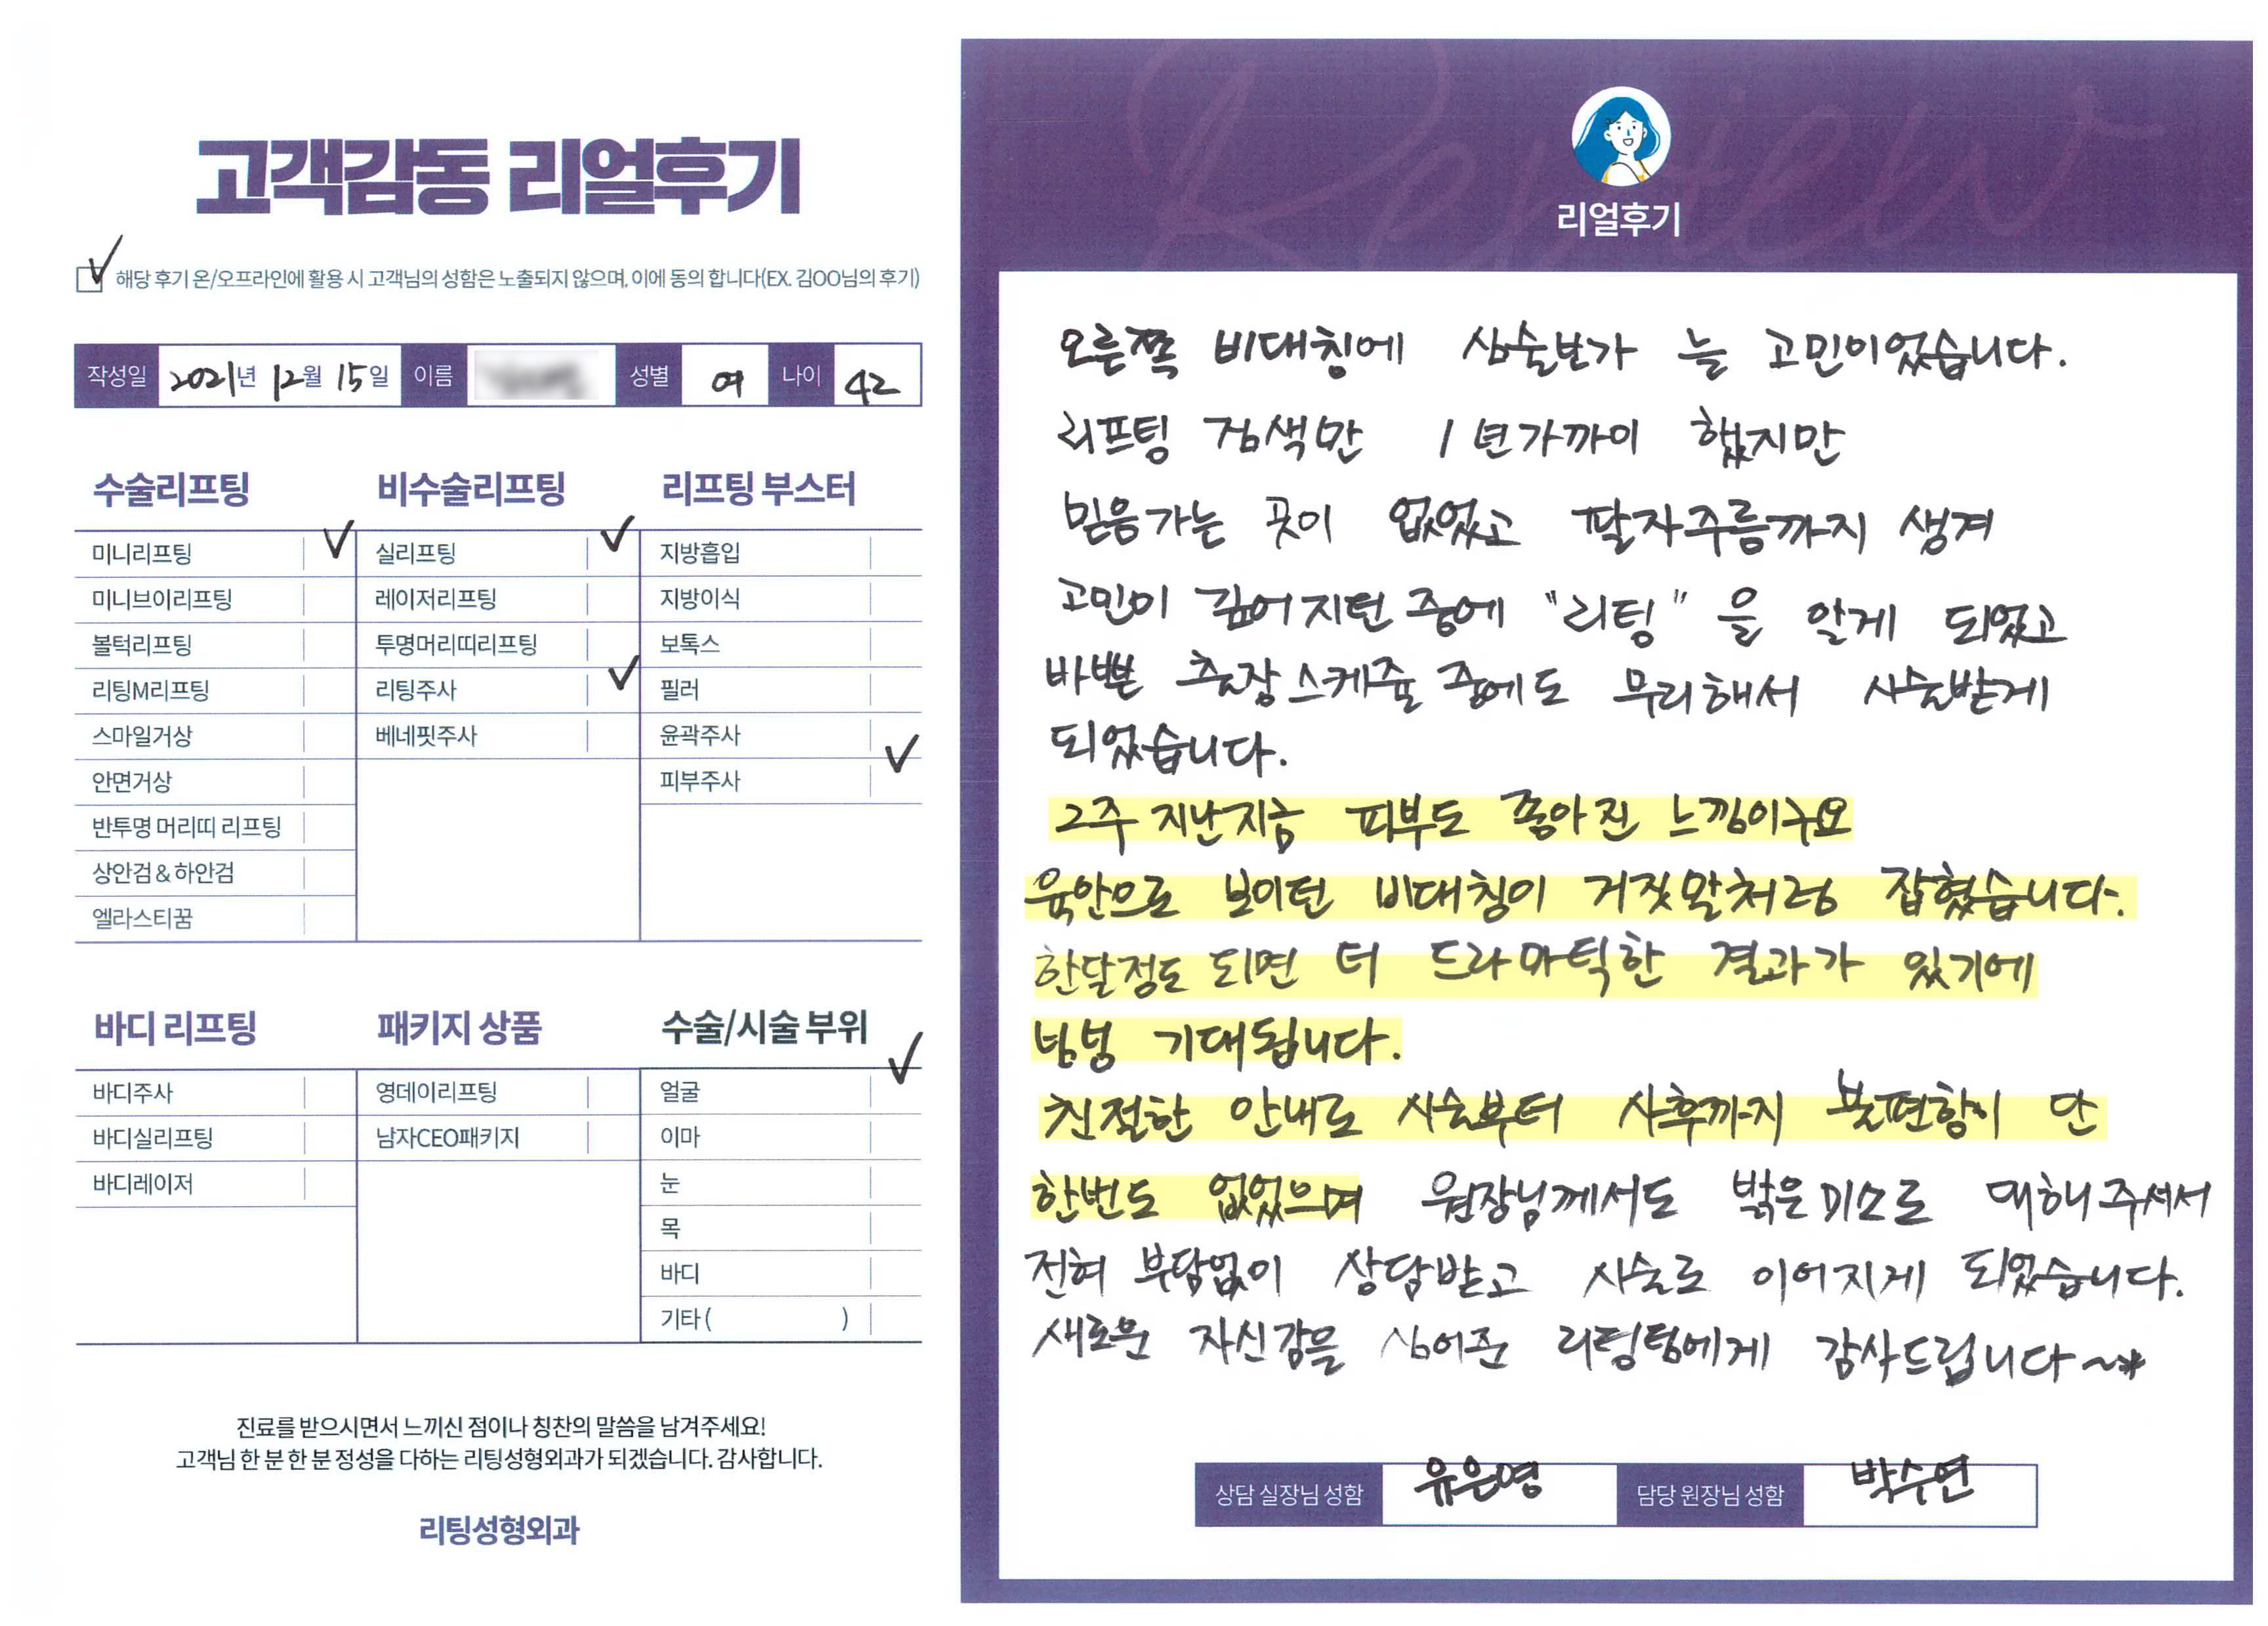 고객감동 리얼후기
해당 후기 온/오프라인에 활용 시 고객님의 성함은 노출되지 않으며, 이에 동의 합니다(EX. 김OO님의 후기)
작성일 2021년 12월 15일 이름 성별 여 나이 42
수술리프팅
미니리프팅
미니브이리프팅
볼턱리프팅
리팅M리프팅
스마일거상
안면거상
반투명 머리띠 리프팅
상안검 & 하안검
엘라스티꿈
비수술리프팅
실리프팅
레이저리프팅
투명머리띠리프팅
리팅주사
베네핏주사
리프팅 부스터
지방흡입
지방이식
보톡스
필러
윤곽주사
피부주사
바디 리프팅
바디주사
바디실리프팅
바디레이저
패키지 상품
영데이리프팅
남자CEO패키지
수술/시술 부위
얼굴
이마
눈
목
바디
기타 ( )
진료를 받으시면서 느끼신 점이나 칭찬의 말씀을 남겨주세요!
고객님 한 분 한 분 정성을 다하는 리팅성형외과가 되겠습니다. 감사합니다.
리팅성형외과
Review
리얼후기
오른쪽 비대칭에 심술보가 늘 고민이었습니다.
리프팅 검색만 1년가까이 했지만
믿음가는 곳이 없었고 팔자주름까지 생겨
고민이 깊어지던 중에 "리팅" 을 알게 되었고
바쁜 출장스케쥴 중에도 무리해서 시술받게
되었습니다.
2주 지난지금 피부도 좋아진 느낌이구요
육안으로 보이던 비대칭이 거짓말처럼 잡혔습니다.
한달정도 되면 더 드라마틱한 결과가 있기에
넘넘 기대됩니다.
친절한 안내로 시술부터 사후까지 불편함이 단
한번도 없었으며 원장님께서도 밝은미소로 대해주셔서
전혀 부담없이 상담받고 시술로 이어지게 되었습니다.
새로운 자신감을 심어준 리팅팀에게 감사드립니다~*
상담 실장님 성함 유은영 담당 원장님 성함 박수연